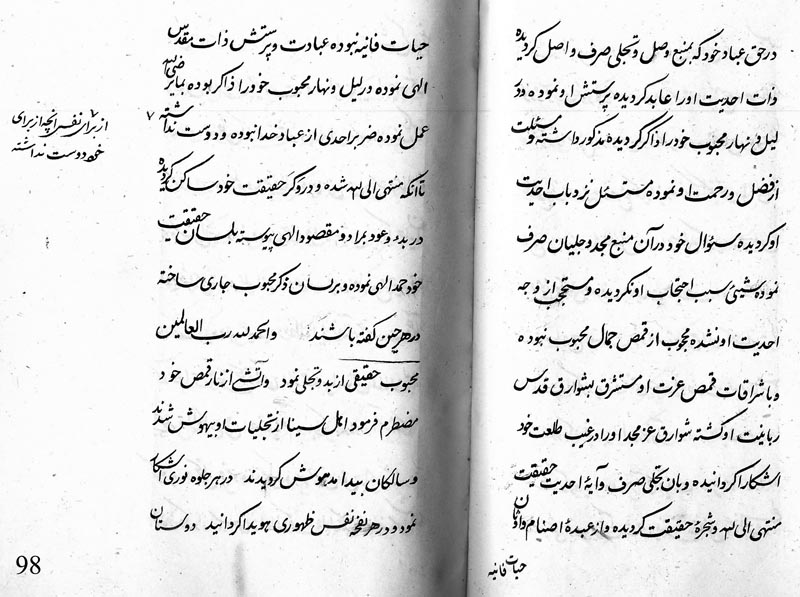 درحق عباد خود که بمنبع وصل و تجلی صرف واصل کردیده
ذات احدیت اورا عابد کردیده پرستش او نموده در
لیل و نهار محبوب خود را ذاکر کردیده مذکور داشته و مسئلت
از فضل و رحمت او نموده مستسئل نزد باب احدیت
او کردیده سئوال خود در آن منبع مجد و جلیان صرف
نموده شیئی سبب احتجاب او نکردیده و محتجب از وجه
احدیت او نشده محجوب از قمص جمال محبوب نبوده
و باشراقات قمص عزت او مستشرق بشوارق قدس
ربانیت او کشته شوارق عز مجد اورا در غیب طلعت خود
اشکارا کردانیده و بان تجلی صرف و آیهٔ احدیت حقیقت
منتهی الی الله و شجرهٔ حقیقت کردیده و از عبدهٔ اصنام و اوثان
حیات فانیه
حیات فانیه نبوده عبادت و پرستش ذات مقدس
الهی نموده در لیل و نهار محبوب خود را ذاکر بوده بما یرضی الله
عمل نموده ضر بر احدی از عباد خدا نبوده و دوست نداشته ۷
۷ از برای نفس انچه از برای
خود دوست نداشته
تا آنکه منتهی الی الله شده و در وکر حقیقت خود ساکن کردیده
در بدء و عود بمراد و مقصود الهی پیوسته بلسان حقیقت
خود حمد الهی نموده و بر لسان ذکر محبوب جاری ساخته
در هر حین کفته باشند والحمد لله رب العالمین
محبوب حقیقی از بدو تجلی نمود و آتشی از نار قمص خود
مضطرم فرمود اهل سینا از تجلیات او بیهوش شدند
و سالکان بیدا مدهوش کردیدند در هر جلوه نوری اشکار
نمود و در هر نفخه نفس ظهوری هویدا کردانید دوستان
98